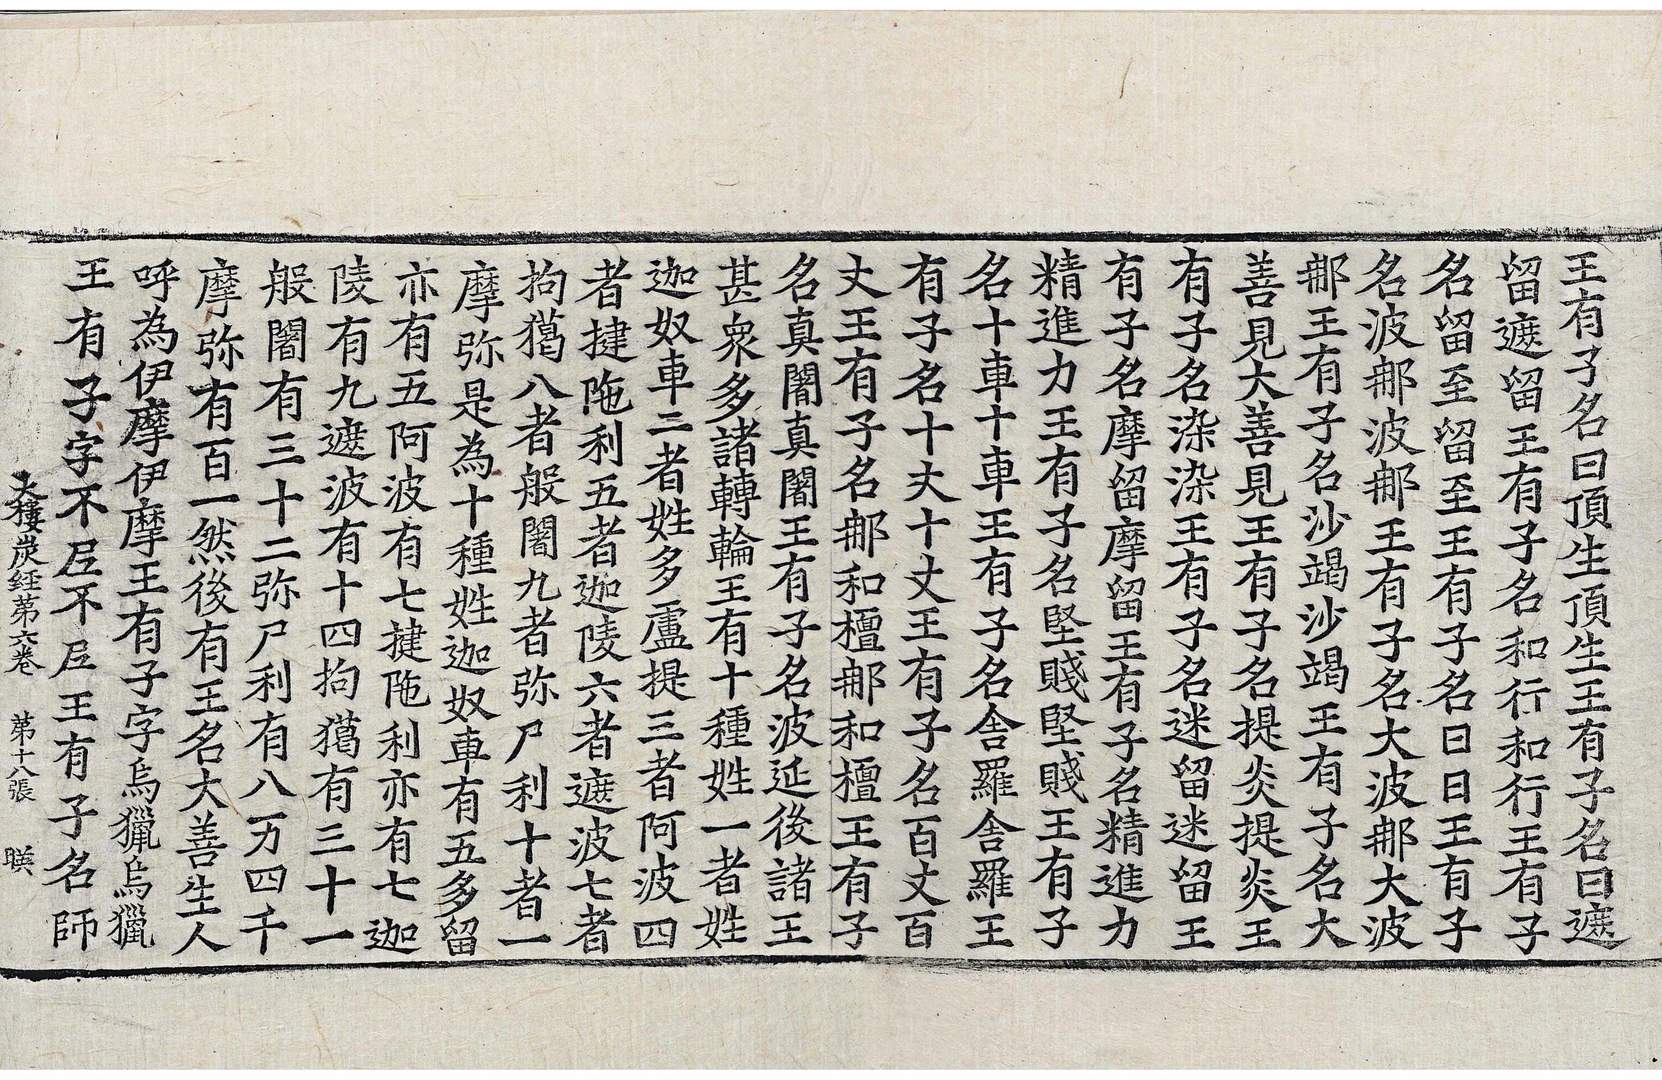 王有子名曰頂生頂生王有子名曰遮
留遮留王有子名和行和行王有子
名留至留至王有子名曰曰王有子
名波𨚗波𨚗王有子名大波𨚗大波
𨚗王有子名沙竭沙竭王有子名大
善見大善見王有子名提炎提炎王
有子名染染王有子名迷留迷留王
有子名摩留摩留王有子名精進力
精進力王有子名堅賤堅賤王有子
名十車十車王有子名舍羅舍羅王
有子名十丈十丈王有子名百丈百
丈王有子名𨚗和檀𨚗和檀王有子
名真闍真闍王有子名波延後諸王
甚衆多諸轉輪王有十種姓一者姓
迦奴車二者姓多盧提三者阿波四
者揵陁利五者迦陵六者遮波七者
拘獦八者般闍九者弥尸利十者一
摩弥是為十種姓迦奴車有五多留
亦有五阿波有七揵陁利亦有七迦
陵有九遮波有十四拘獦有三十一
般闍有三十二弥尸利有八万四千
摩弥有百一然後有王名大善生人
呼為伊摩伊摩王有子字烏獵烏獵
王有子字不尼不尼王有子名師
大樓炭経第六卷 第十八張